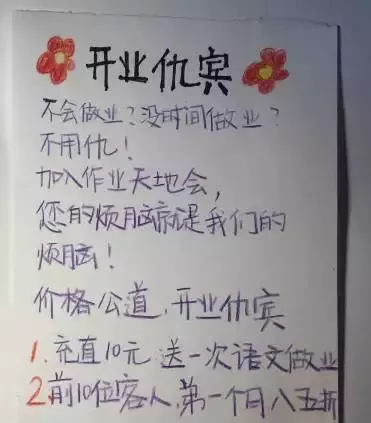 开业仇宾
不会做业?没时间做业?
不用仇!
加入作业天地会,
您的烦脑就是我们的
烦脑!
价格公道,开业仇宾
1.充直10元 送一次语文做业
2.前10位客人,第一个月八五折